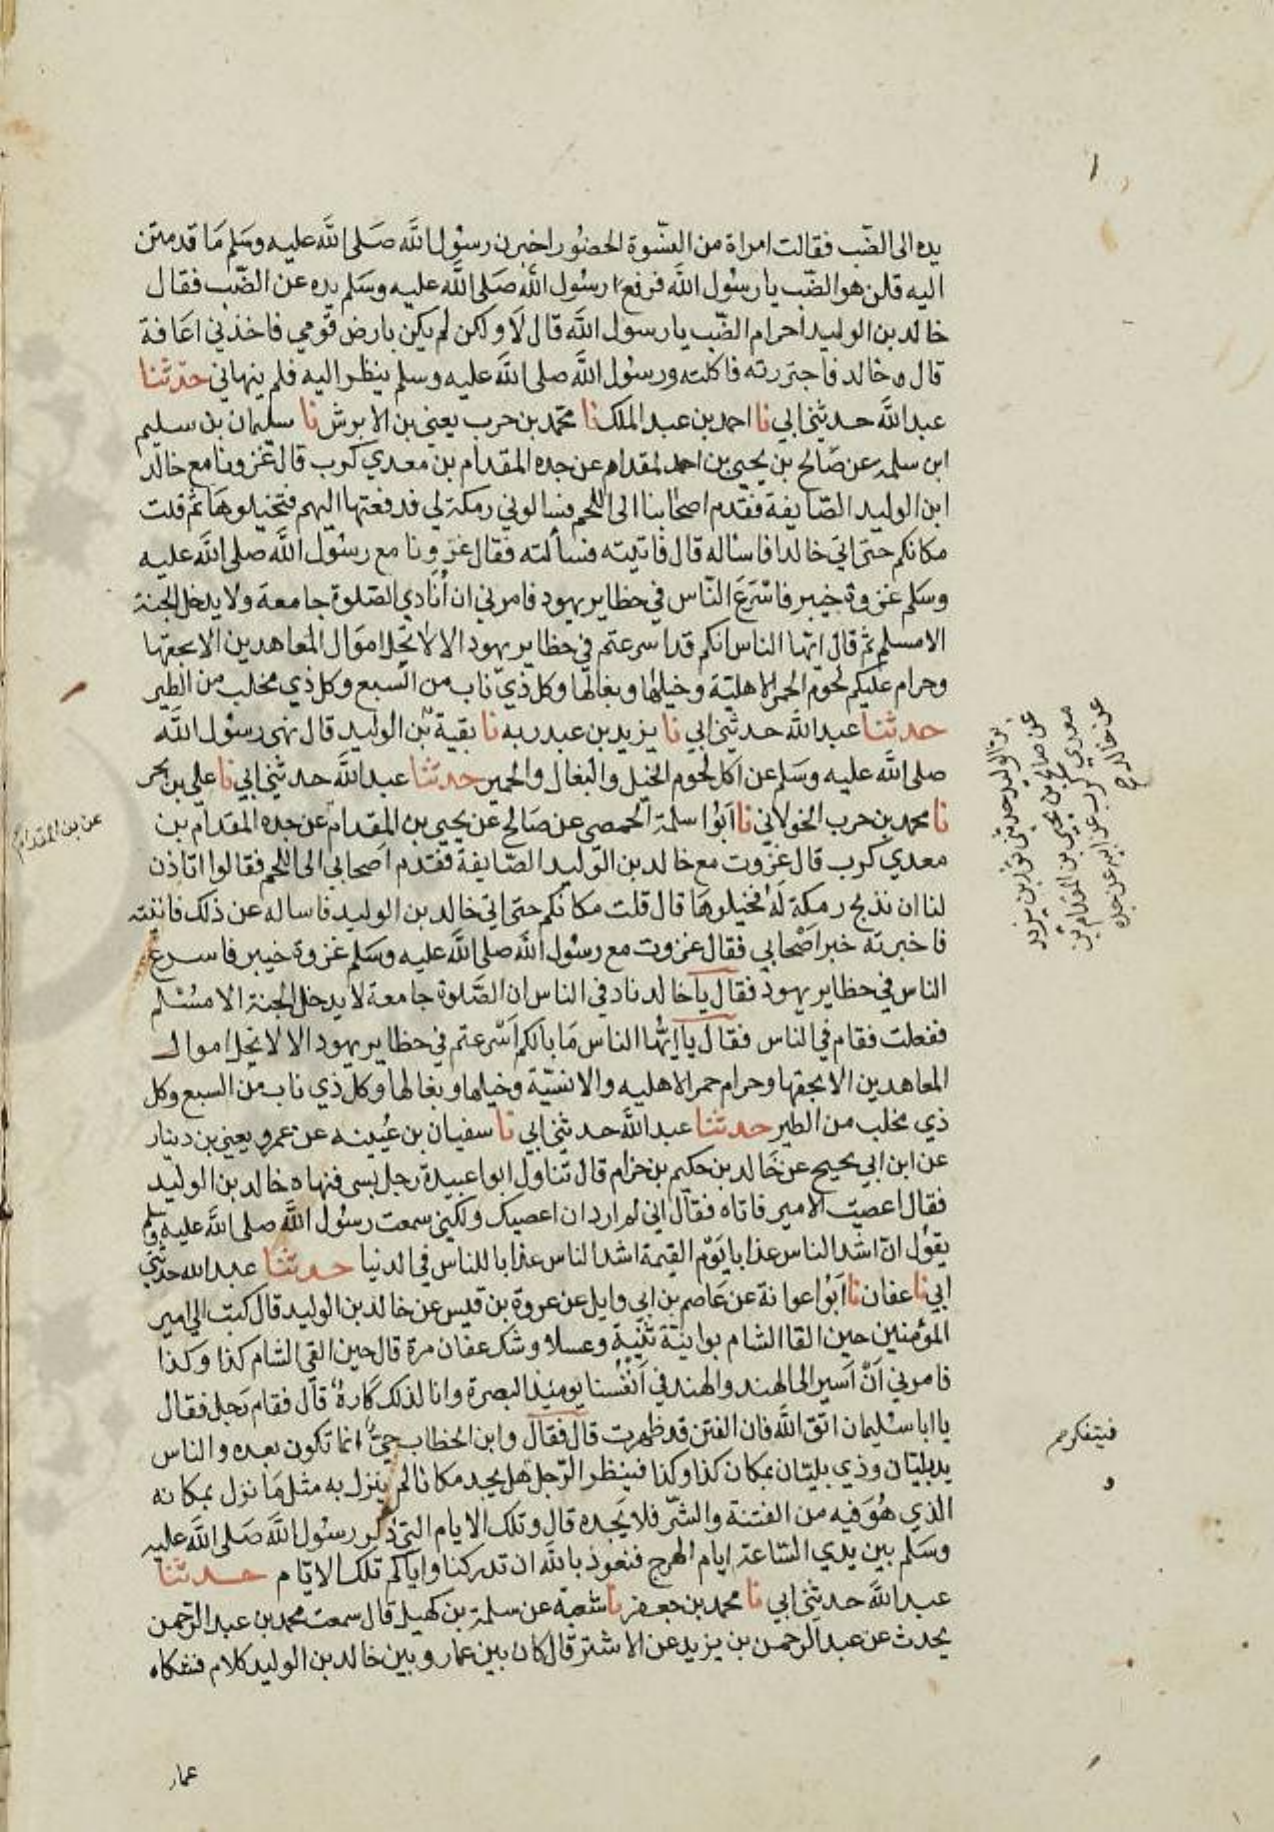 يده الى الضب فقالت امراة من النسوة الحضور اخبرن رسول الله صلى الله عليه وسلم ما قدمتن
اليه قلن هو الضب يا رسول الله فرفع رسول الله صلى الله عليه وسلم يده عن الضب فقال
خالد بن الوليد احرام الضب يا رسول الله قال لا ولكن لم يكن بارض قومي فاخذني اعافة
قال خالد فاجتررته فاكلته ورسول الله صلى الله عليه وسلم ينظر اليه فلم ينهاني حدثنا
عبد الله حدثني ابي نا احمد بن عبد الملك نا محمد بن حرب يعني بن الابرش نا سليمان بن سليم
ابن سلمة عن صالح بن يحيى بن احمد لمقدام عن جده المقدام بن معدي كرب قال غزونا مع خالد
ابن الوليد الصايفة فقدم اصحابنا الى اللحم فسالوني رمكة لي فدفعتها اليهم فتخيلوها ثم قلت
مكانكم حتى اتي خالدا فاساله قال فاتيته فسألته فقال غزونا مع رسول الله صلى الله عليه
وسلم غزوة خيبر فاسرع الناس في حظاير يهود فامرني ان أنادي الصلوة جامعة ولا يدخل الجنة
الا مسلم ثم قال ايها الناس انكم قد اسرعتم في حظاير يهود الا لا تحل اموال المعاهدين الا بحقها
وحرام عليكم لحوم الحمر الاهلية وخيلها وبغالها وكل ذي ناب من السبع وكل ذي مخلب من الطير
حدثنا عبد الله حدثني ابي نا يزيد بن عبد ربه نا بقية بن الوليد قال نهى رسول الله
صلى الله عليه وسلم عن اكل لحوم الخيل والبغال والحمير حدثنا عبد الله حدثني ابي نا علي بن بحر
نا محمد بن حرب الخولاني نا ابوا سلمة الحمصي عن صالح عن يحيى بن المقدام عن جده المقدام بن
معدي كرب قال غزوت مع خالد بن الوليد الصايفة فقدم اصحابي الى اللحم فقالوا اتاذن
لنا ان نذبح رمكة له فخيلوها قال قلت مكانكم حتى اتي خالد بن الوليد فاساله عن ذلك فاتيته
فاخبرته خبر اصحابي فقال غزوت مع رسول الله صلى الله عليه وسلم غزوة خيبر فاسرع
الناس في حظاير يهود فقال يا خالد ناد في الناس ان الصلوة جامعة لا يدخل الجنة الا مسلم
ففعلت فقام في الناس فقال يا ايها الناس ما بالكم اسرعتم في حظاير يهود الا لا تحل اموال
المعاهدين الا بحقها وحرام حمر الاهليه والانسية وخيلها وبغالها وكل ذي ناب من السبع وكل
ذي مخلب من الطير حدثنا عبد الله حدثني ابي نا سفيان بن عيينه عن عمرو يعني بن دينار
عن ابن ابي نجيح عن خالد بن حكيم بن حزام قال تناول ابوا عبيدة رجل بسى فنهاه خالد بن الوليد
فقال اعصيت الامير فاتاه فقال اني لم ارد ان اعصيك ولكني سمعت رسول الله صلى الله عليه وسلم
يقول ان اشد الناس عذابا يوم القيمة اشد الناس عذابا للناس في الدنيا حدثنا عبد الله حدثني
ابي نا عفان نا ابوا عوانة عن عاصم بن ابي وايل عن عروة بن قيس عن خالد بن الوليد قال كتب الي امير
المؤمنين حين القا الشام بوانية ثنية وعسلا وشك عفان مرة قال حين القى الشام كذا وكذا
فامرني ان اسير الى الهند والهند في انفسنا يومئذ البصرة وانا لذلك كاره قال فقام رجل فقال
يا ابا سليمان اتق الله فان الفتن قد ظهرت قال فقال وابن الخطاب حي انما تكون بعده والناس
بذيبليان وذي بليتان بمكان كذا وكذا فينظر الرجل هل يجد مكانا لم ينزل به مثل ما نزل بمكانه
الذي هو فيه من الفتنة والشر فلا يجده قال وتلك الايام التي ذكر رسول الله صلى الله عليه
وسلم بين يدي الساعة ايام الهرج فنعوذ بالله ان تدركنا واياكم تلك الايام حدثنا
عبد الله حدثني ابي نا محمد بن جعفر نا شعبة عن سلمة بن كهيل قال سمعت محمد بن عبد الرحمن
يحدث عن عبد الرحمن بن يزيد عن الاشتر قال كان بين عمار وبين خالد بن الوليد كلام فشكاه
عمار
بن الوليد حدثني ثور بن يزيد
عن صالح بن يحيى بن المقدام بن
معدي كرب عن ابيه عن جده
عن خالد
عن بن المقدام
فيتفكر